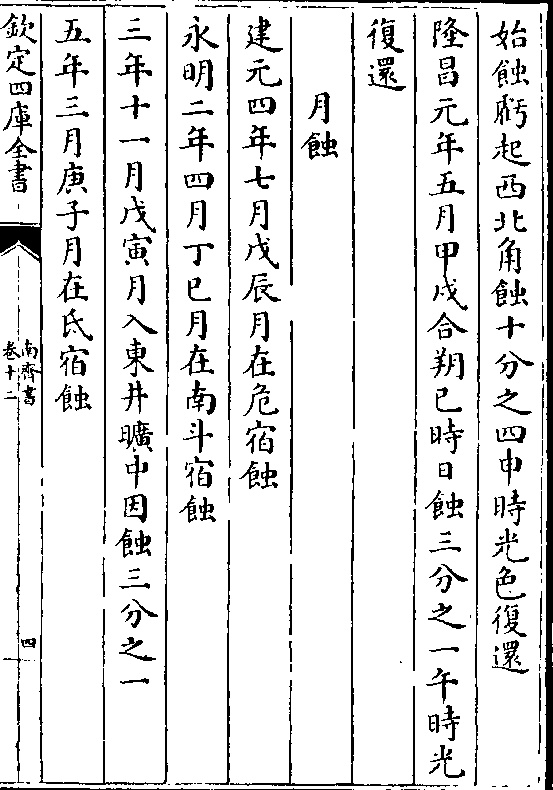 始蝕虧起西北角蝕十分之四申時光色復還
隆昌元年五月甲戌合朔巳時日蝕三分之一午時光
復還
月蝕
建元四年七月戊辰月在危宿蝕
永明二年四月丁巳月在南斗宿蝕
三年十一月戊寅月入東井曠中因蝕三分之一
五年三月庚子月在氐宿蝕
欽定四庫全書
南齊書
卷十二
四